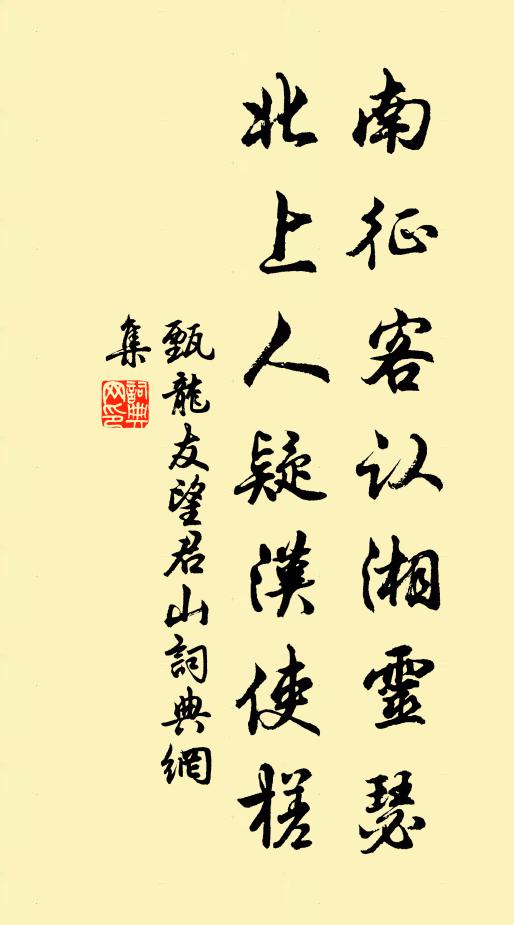 南征客认湘靈瑟
北上人疑漢使槎
甄龍友望君山詞典網
集
詞典
网印